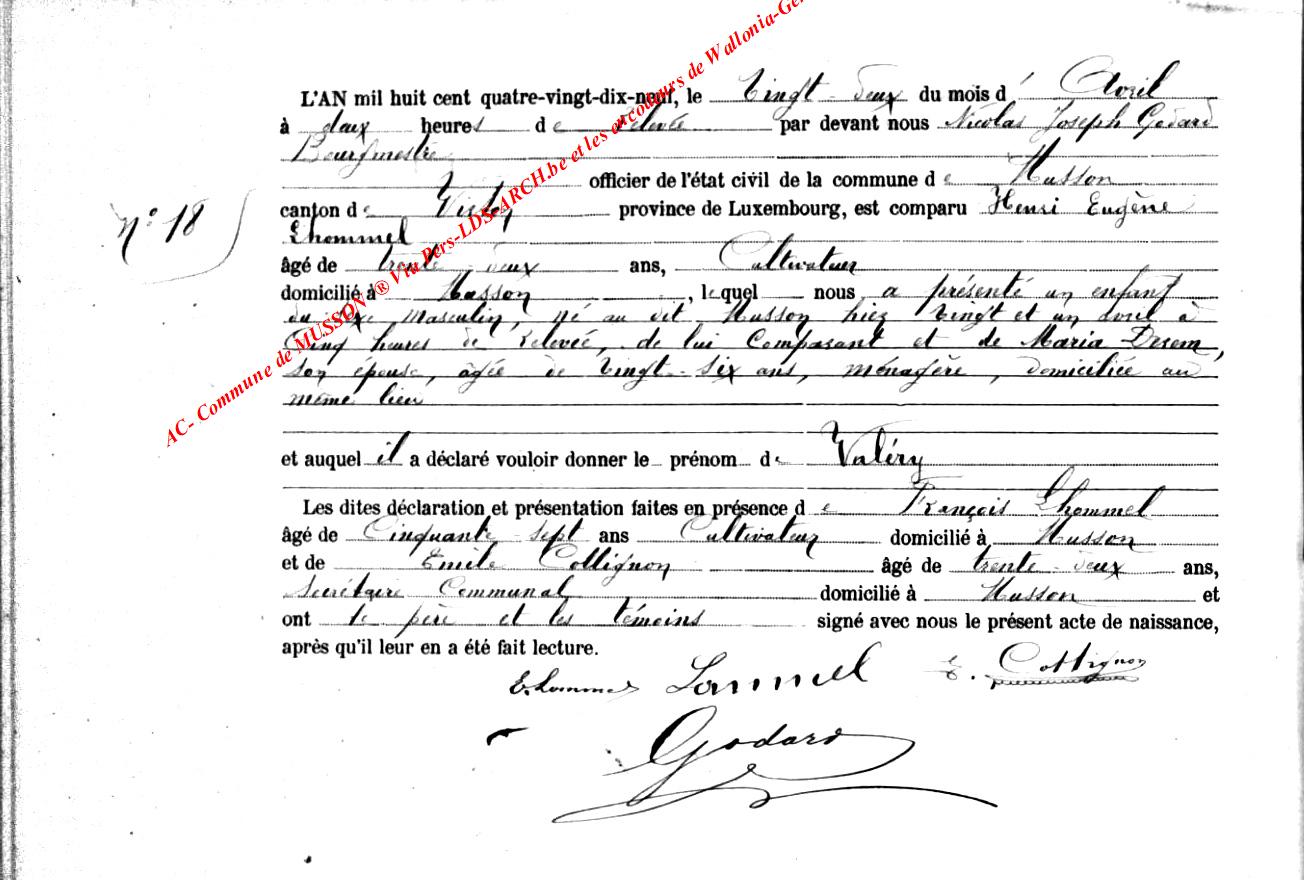 L'AN mil huit cent quatre-vingt-dix-neuf, le Vingt-deux du mois d' Avril
à deux heures de relevée par devant nous Nicolas Joseph Godard
Bourgmestre
officier de l'état civil de la commune de Musson
N° 18
canton de Virton province de Luxembourg, est comparu Henri Eugène
Lhommel
âgé de trente-deux ans, Cultivateur
domicilié à Musson, lequel nous a présenté un enfant
du sexe masculin, né au dit Musson hier Vingt et un Avril à
Cinq heures de relevée, de lui Comparant et de Maria
son épouse, âgée de Vingt-six ans, ménagère, domiciliée au
même lieu
et auquel il a déclaré vouloir donner le prénom de Valéry
Les dites déclaration et présentation faites en présence de François Lhommel
âgé de Cinquante-sept ans Cultivateur domicilié à Musson
et de Emile Collignon âgé de trente-deux ans,
Secrétaire Communal domicilié à Musson et
ont le père et les témoins signé avec nous le présent acte de naissance,
après qu'il leur en a été fait lecture.
Lommel E. Collignon
Godard
AC- Commune de MUSSON ® Via Pers-LDS-ARCH.be et les encodeurs de Wallonia-Ge